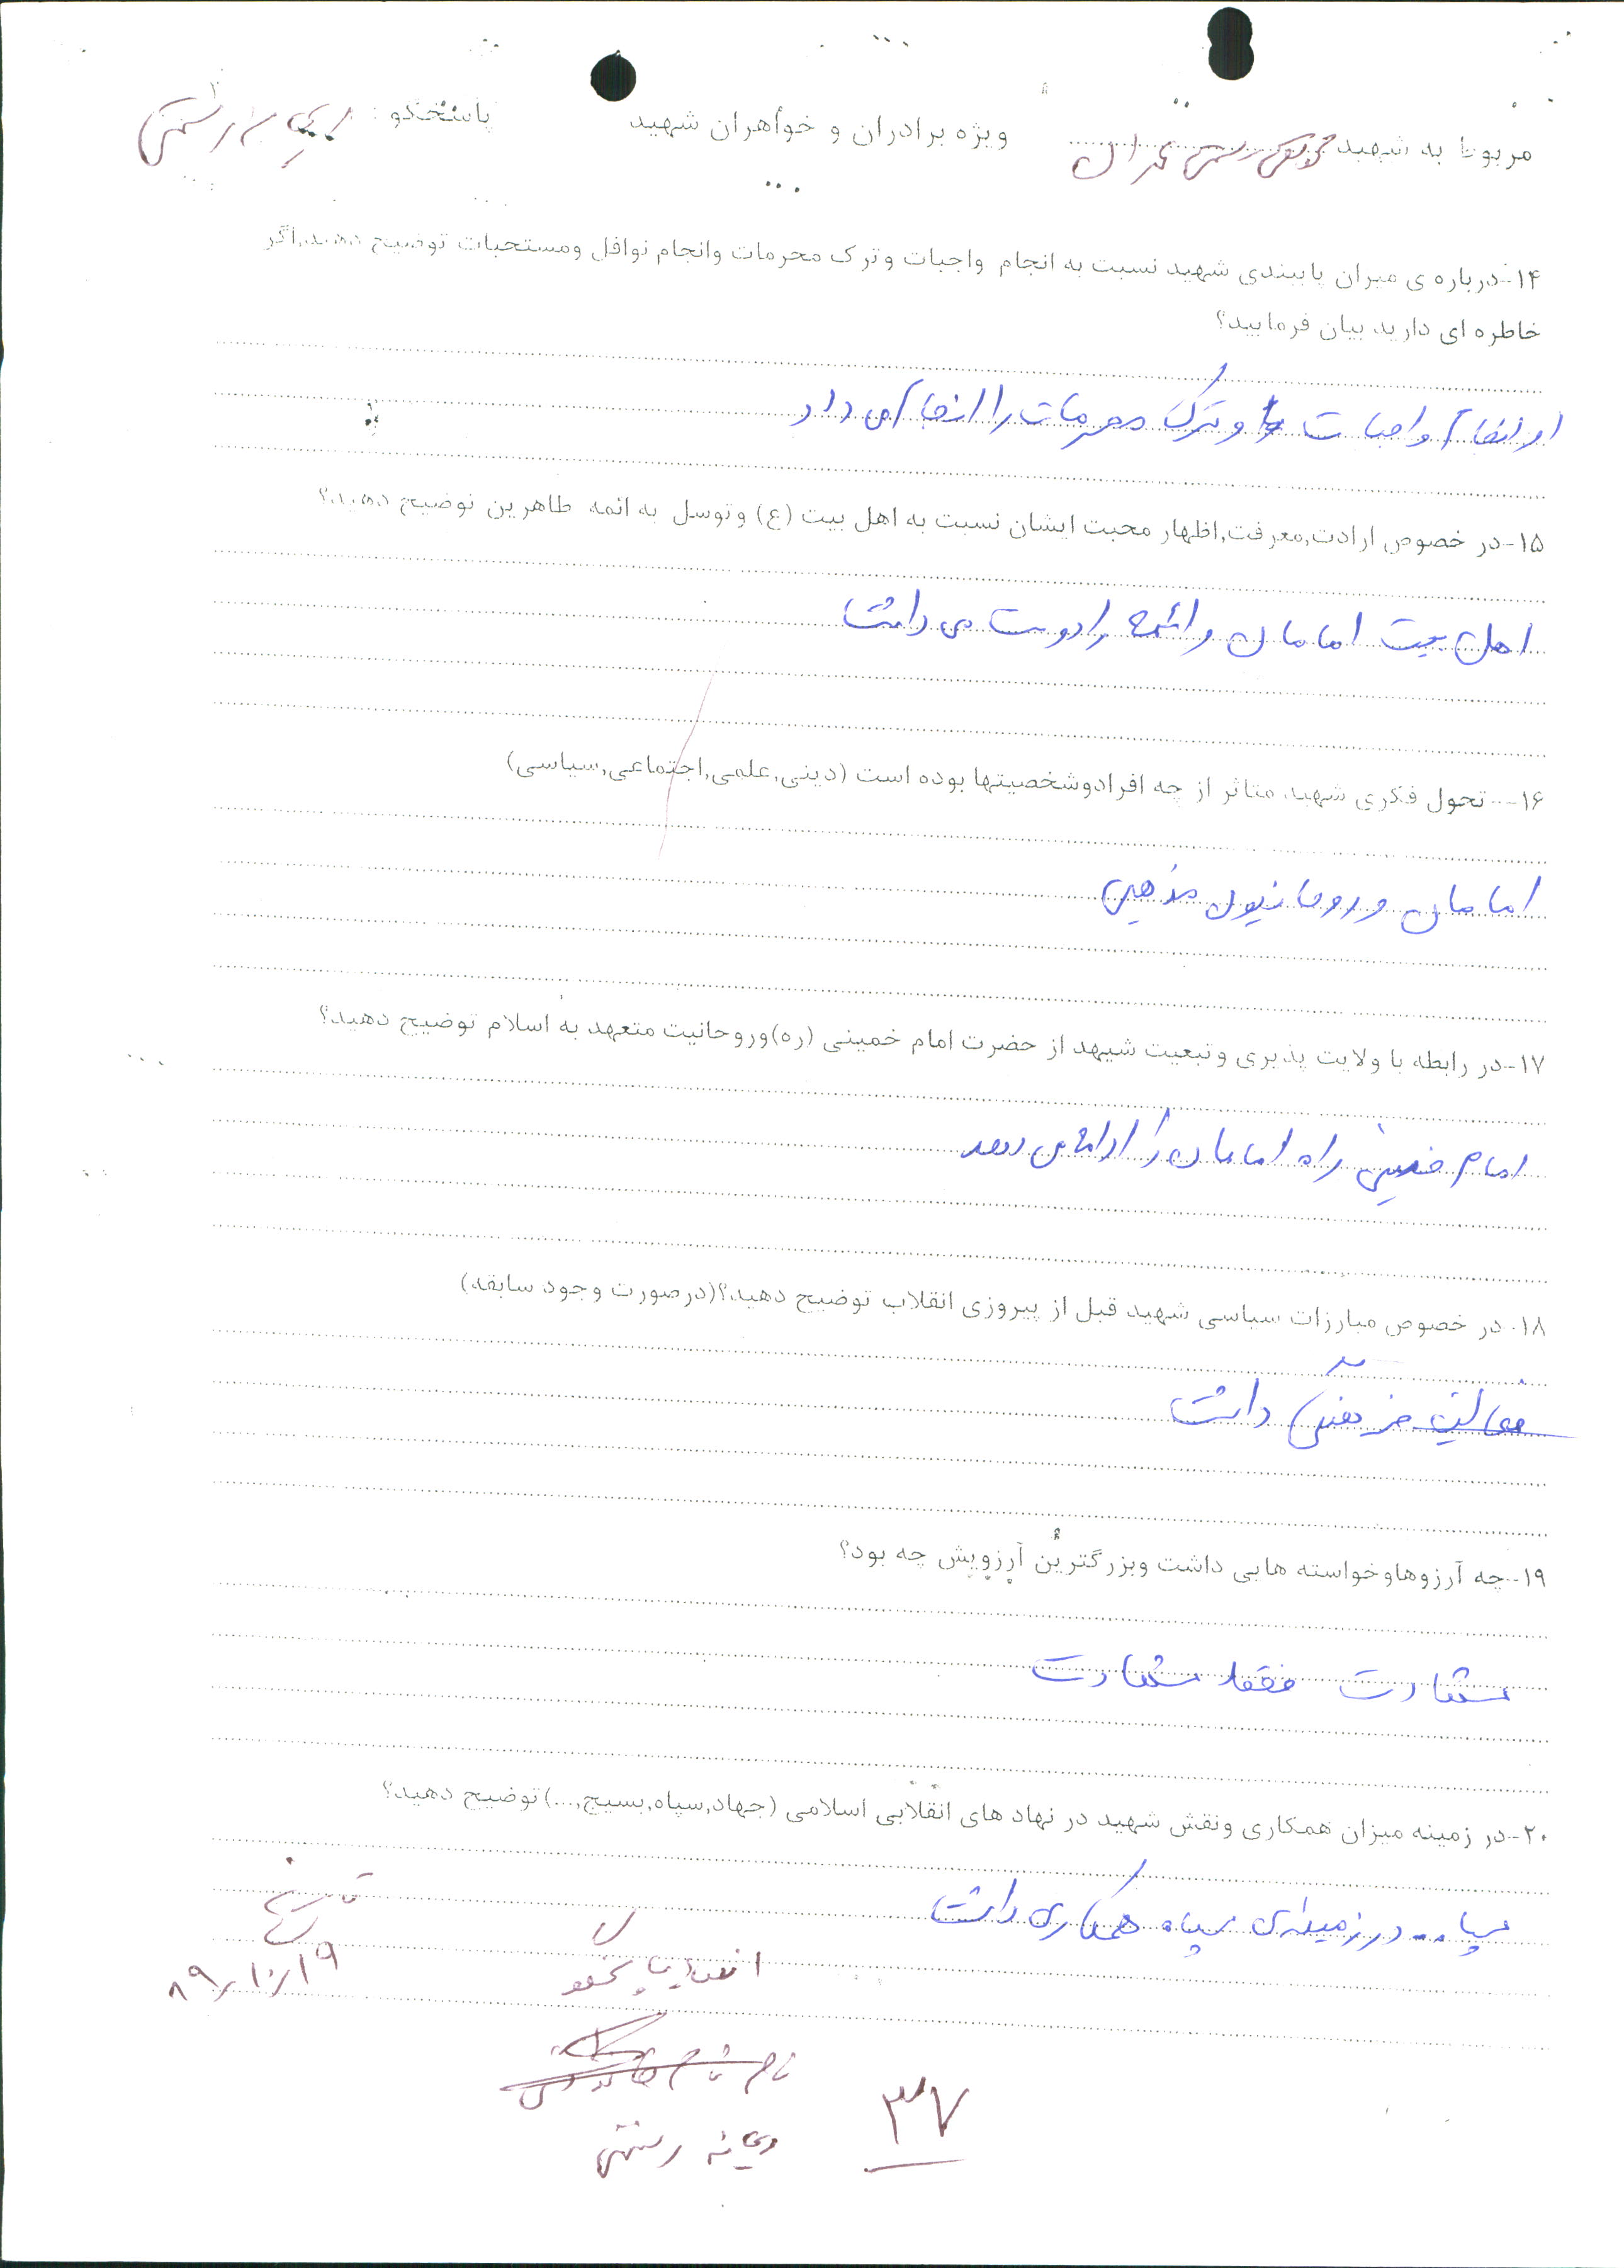 مربوط به شهید ویژه برادران و خواهران شهید پاسخگو :
۱۴-درباره ی میزان پایبندی شهید نسبت به انجام واجبات وترک محرمات وانجام نوافل ومستحبات توضیح دهید,اگر
خاطره ای دارید بیان فرمایید؟
او انجام واجبات و ترک محرمات را انجام می داد
۱۵-در خصوص ارادت,معرفت,اظهار محبت ایشان نسبت به اهل بیت (ع) وتوسل به ائمه طاهرین توضیح دهید؟
اهل بیت امامان و ائمه را دوست می داشت
۱۶- تحول فکری شهید متاثر از چه افرادوشخصیتها بوده است (دینی,علمی,اجتماعی,سیاسی)
امامان و روحانیون مذهبی
۱۷-در رابطه با ولایت پذیری وتبعیت شیهد از حضرت امام خمینی (ره)وروحانیت متعهد به اسلام توضیح دهید؟
امام خمینی راه امامان را ادامه می دهد
۱۸. در خصوص مبارزات سیاسی شهید قبل از پیروزی انقلاب توضیح دهید؟(درصورت وجود سابقه)
فعالیت داشت
۱۹-چه آرزوهاوخواسته هایی داشت وبزرگترین آرزویش چه بود؟
شهادت فقط شهادت
۲۰-در زمینه میزان همکاری ونقش شهید در نهاد های انقلابی اسلامی (جهاد,سپاه,بسیج,...)توضیح دهید؟
سپاه .. در زمینه‌ی سپاه همکاری داشت
تاریخ
۸۹,۱۰,۱۹
امضاء پاسخگو
ریحانه رستمی
۳۷